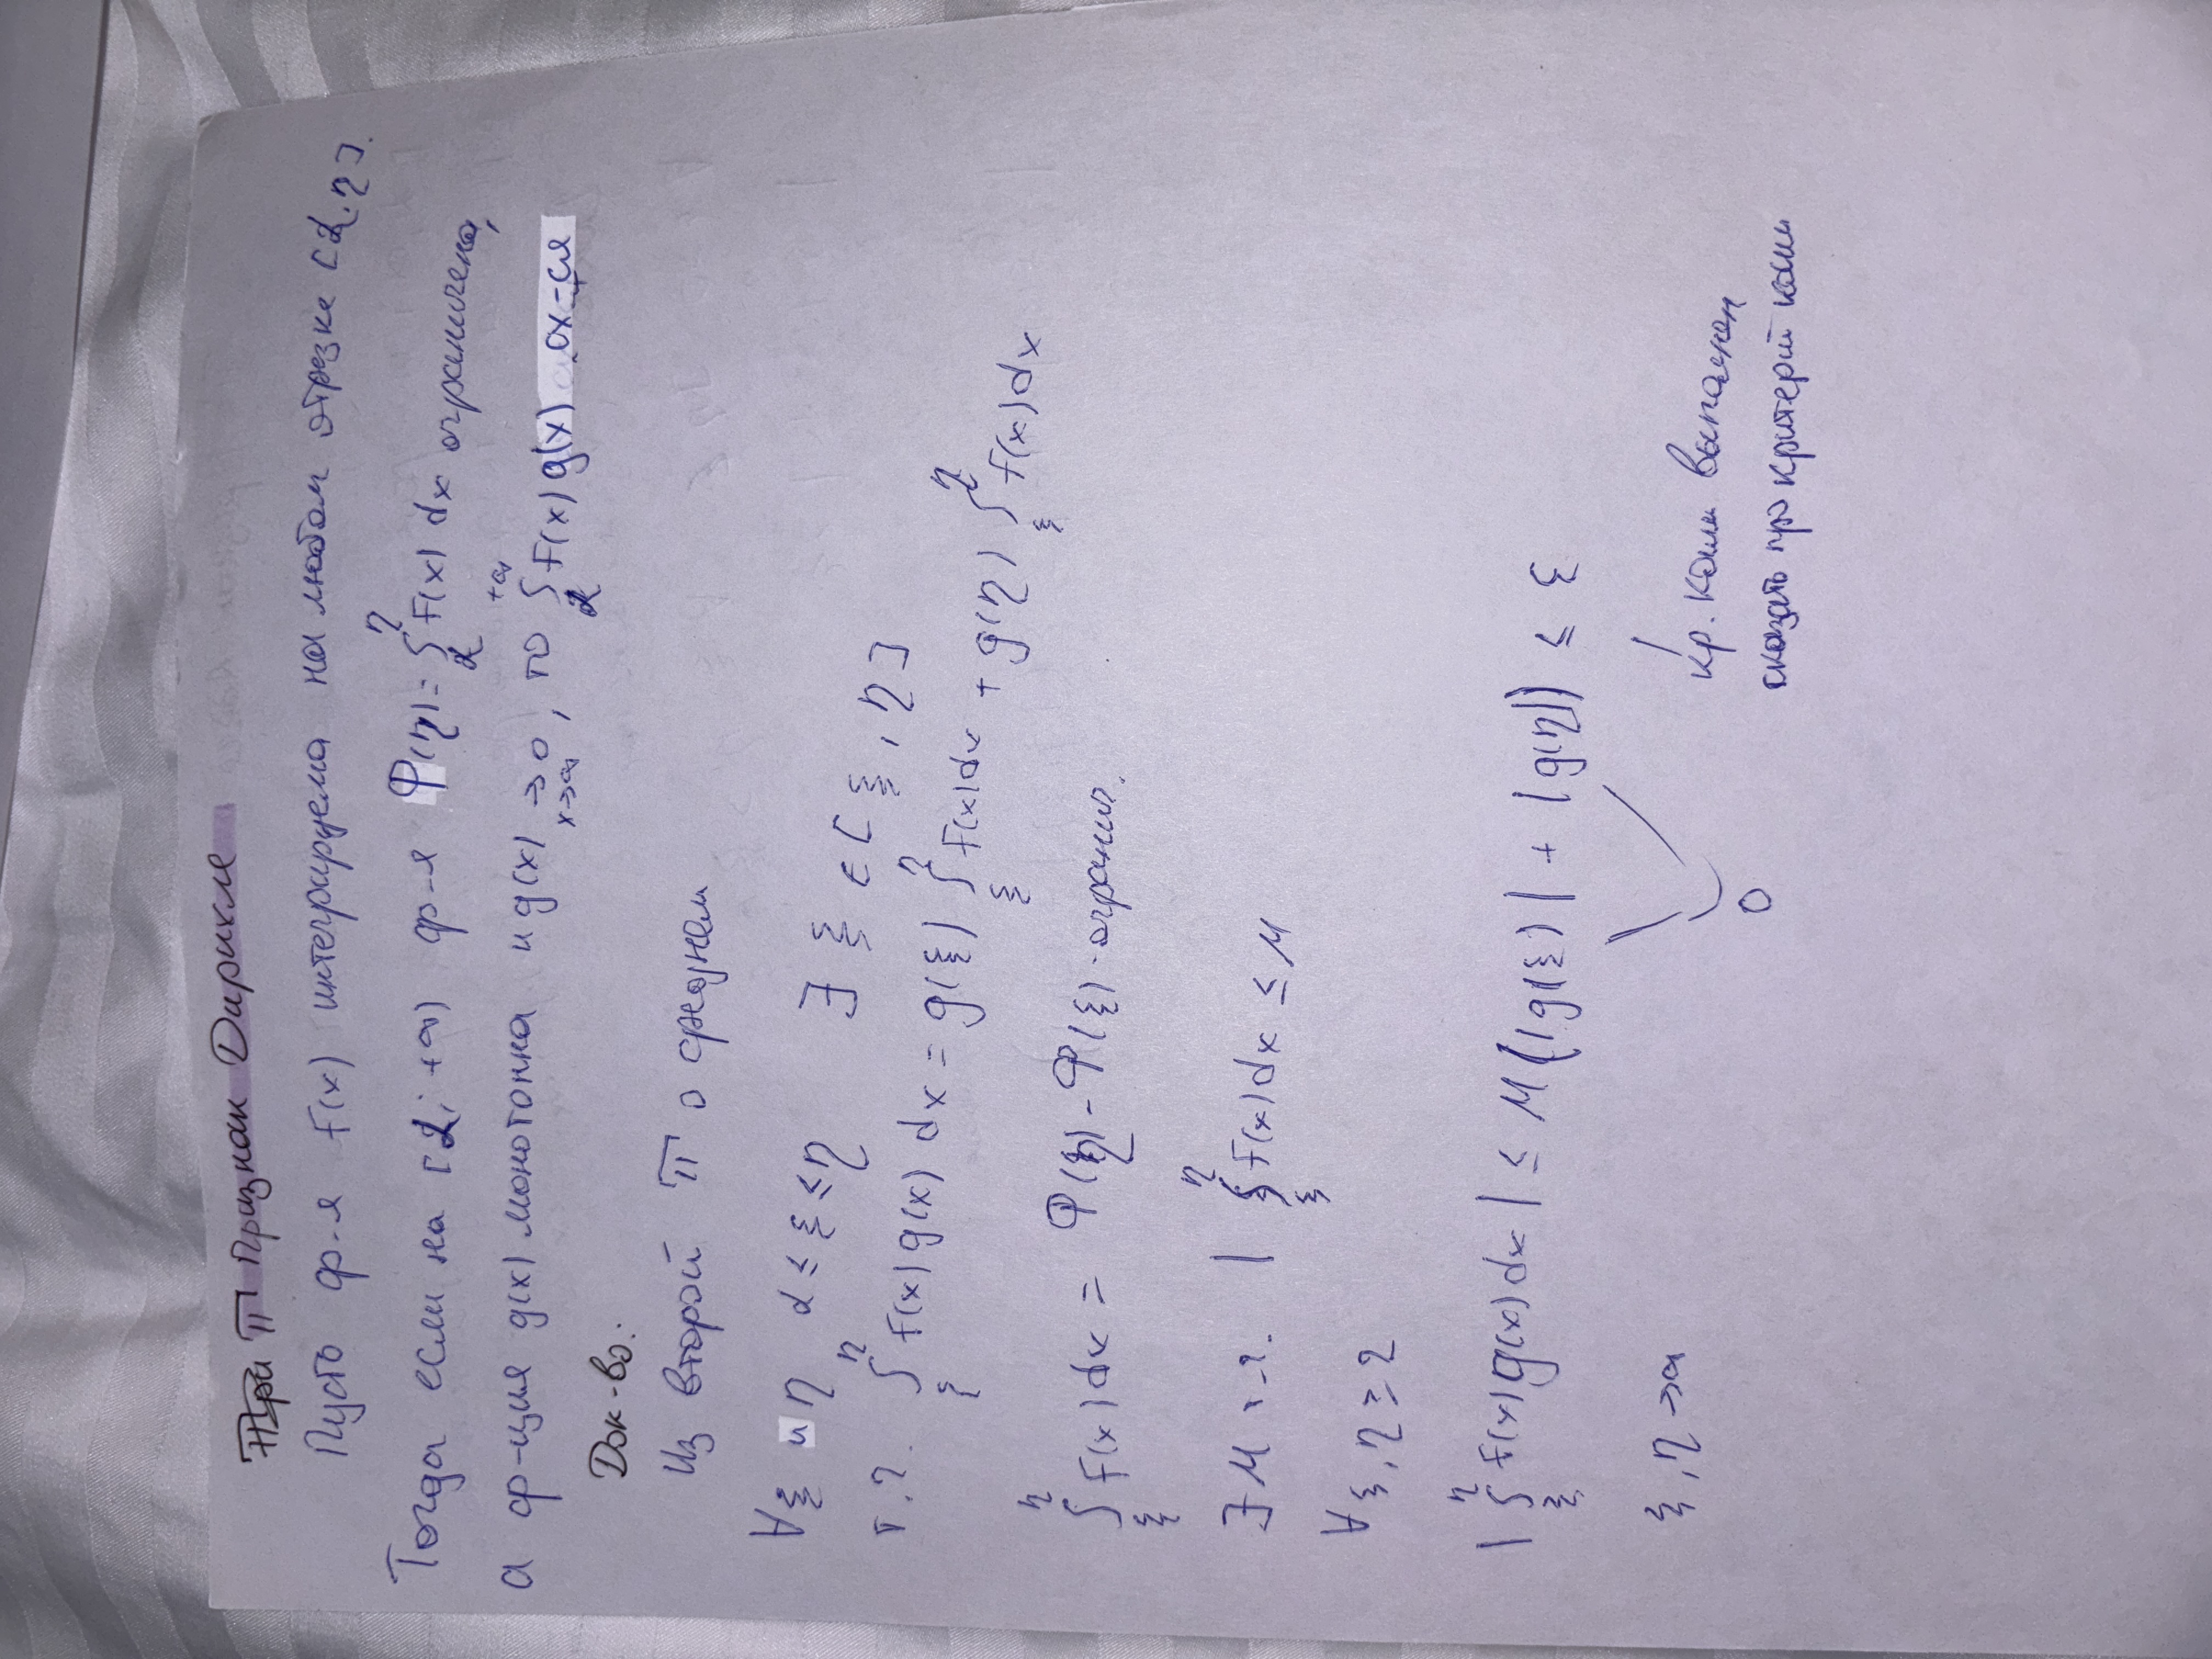 П Признак Дирихле
Пусть ф-я f(x) интегрируема на любом отрезке [2, η].
Тогда если на [2; +∞) ф-я Φ(η) = ∫₂^η f(x) dx ограничена,
а ф-ция g(x) монотонна и g(x) →0 x→∞, то ∫₂^{+∞} f(x) g(x) сх-ся
Док-во:
Из второй П о среднем
∀ξ и η α ≤ ξ ≤ η ∃ ξ ∈ [ξ, η]
т.ч. ∫_ξ^η f(x) g(x) dx = g(ξ) ∫_ξ^η f(x) dx + g(η) ∫_ξ^η f(x) dx
∫_ξ^η f(x) dx = Φ(η) - Φ(ξ) - огранич.
∃ M т.ч. | ∫_ξ^η f(x) dx ≤ M
∀ ξ, η ≥ 2
| ∫_ξ^η f(x) g(x) dx | ≤ M (|g(ξ)| + |g(η)|) ≤ ε
ξ, η → ∞
0
кр. Коши выполнен
сказать про критерий коши